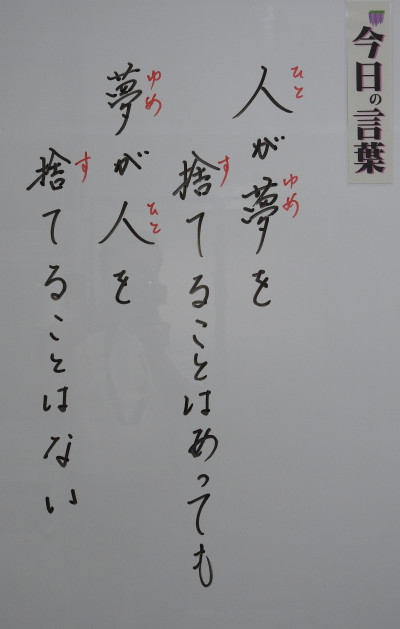 今日の言葉
人が夢を
捨てることはあっても
夢が人を
捨てることはない
ひと
ゆめ
す
ゆめ
ひと
す